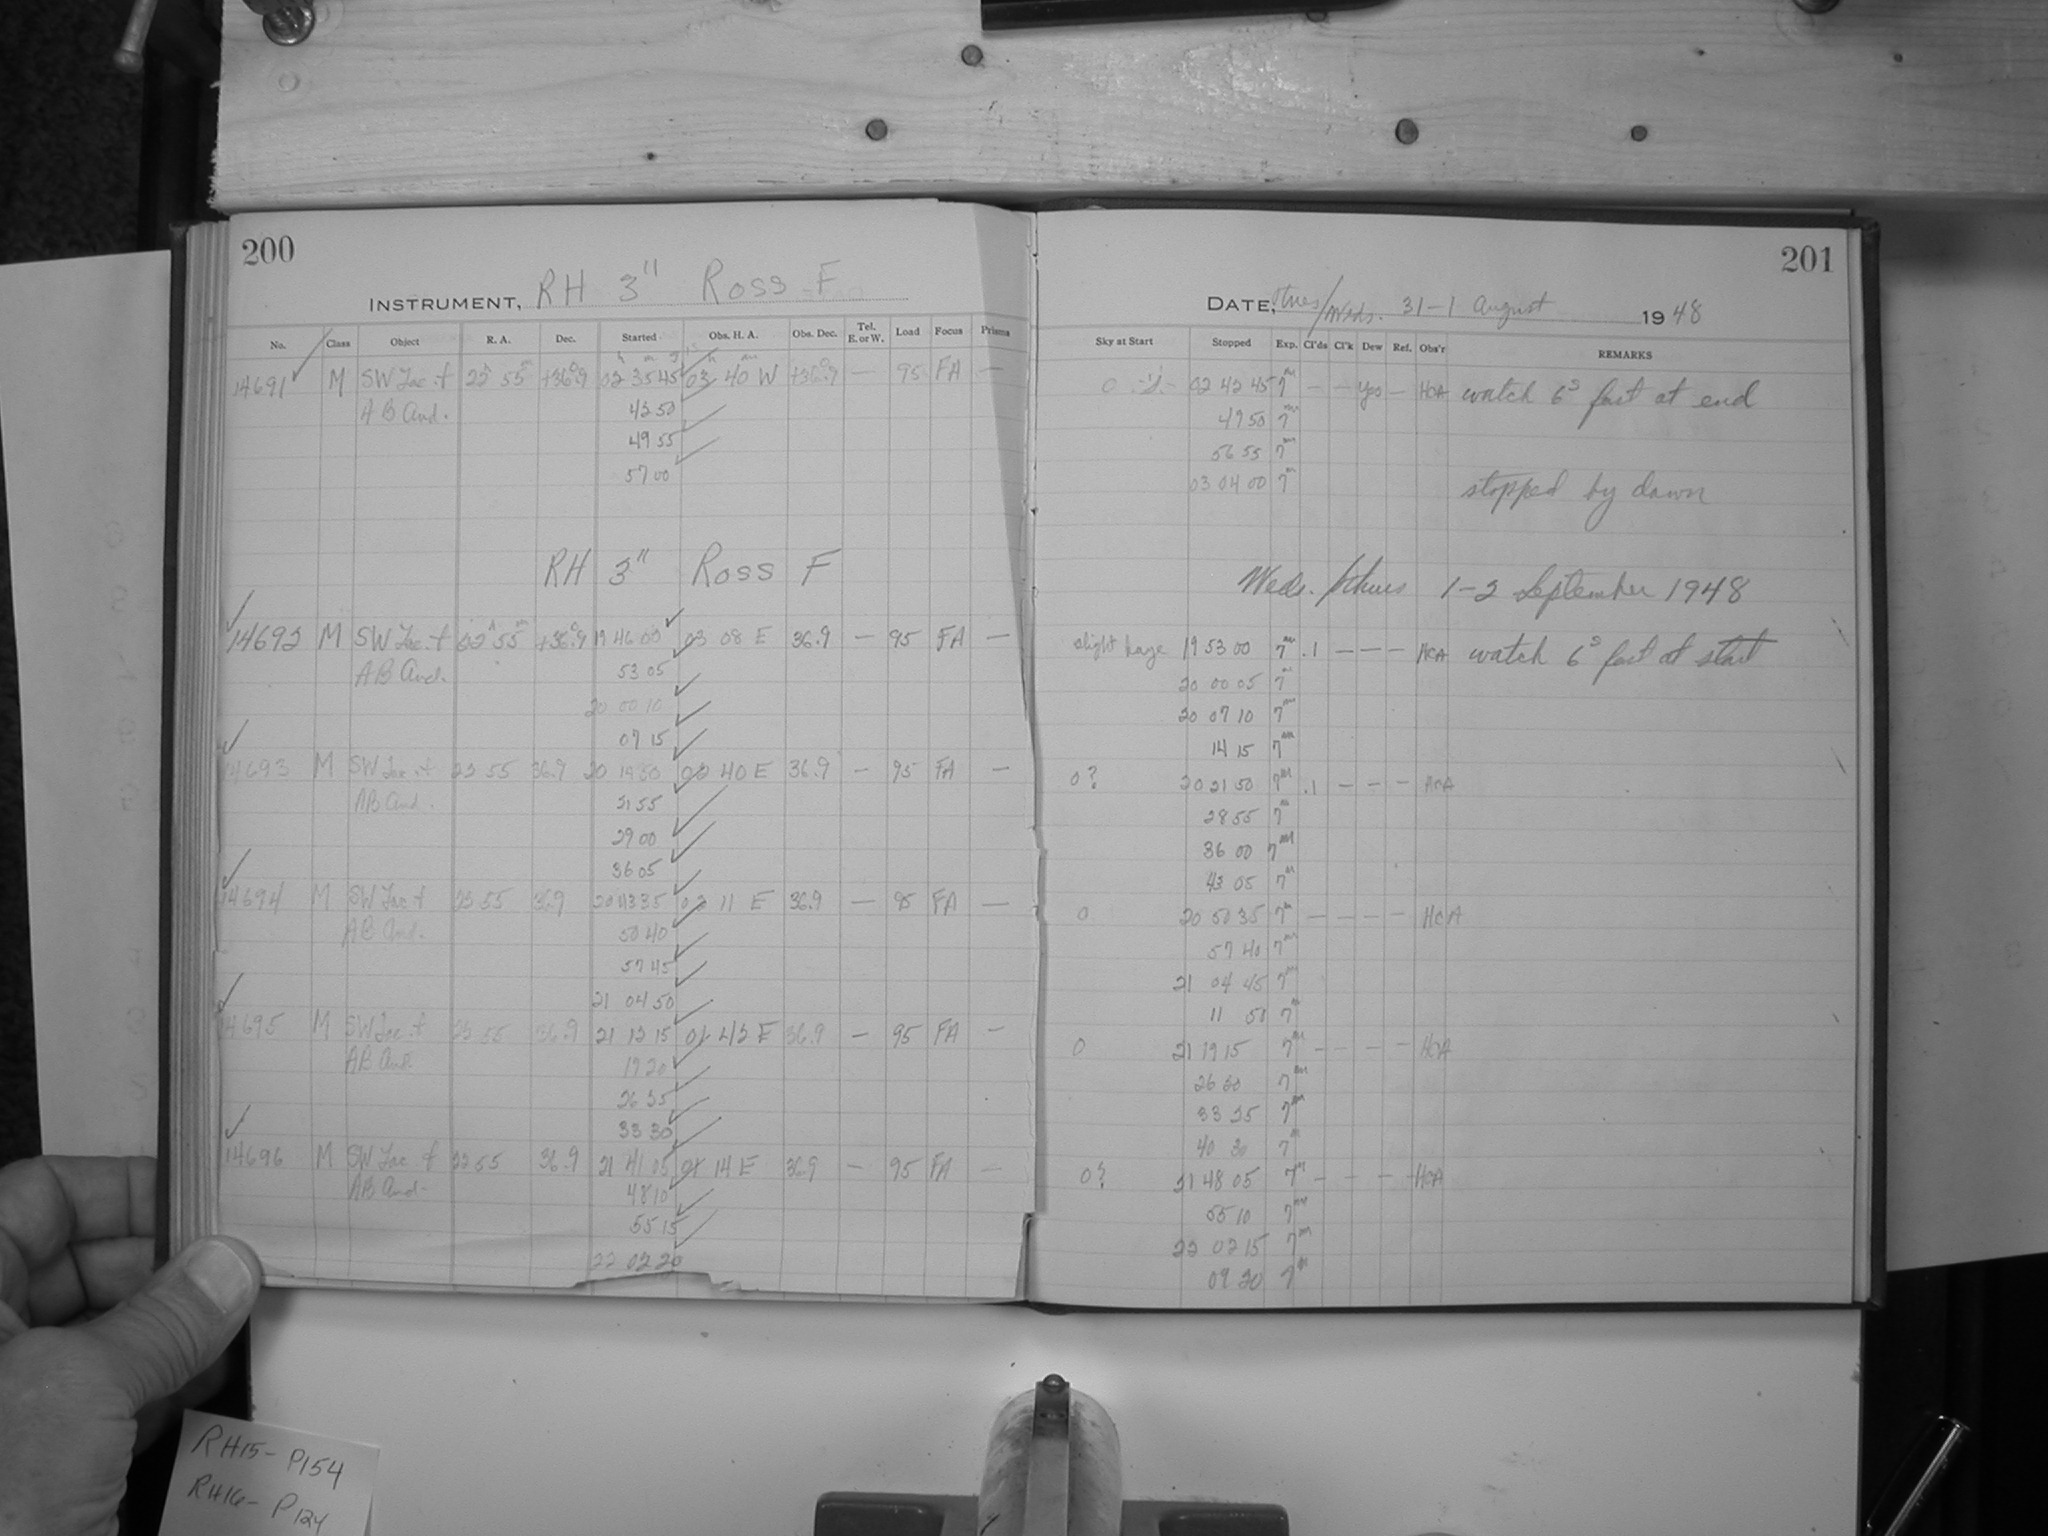 200
INSTRUMENT, RH 3" Ross F
No. Class Object R. A. Dec. Started Obs. H. A. Obs. Dec. Tel. E. or W. Load Focus Prisms
14691 M SW Lac. + 22h 55m +36°.9 02 35 45 03 40 W +36°.9 — 95 FA —
AB And. 42 50
49 55
57 00
RH 3" Ross F
14692 M SW Lac. + 22h 55m +36°.9 19 46 00 03 08 E 36.9 — 95 FA —
AB And. 53 05
20 00 10
07 15
14693 M SW Lac. + 22 55 36.9 20 14 50 02 40 E 36.9 — 95 FA —
AB And. 21 55
29 00
36 05
14694 M SW Lac + 22 55 36.9 20 43 35 02 11 E 36.9 — 95 FA —
AB And. 50 40
57 45
21 04 50
14695 M SW Lac. + 22 55 36.9 21 12 15 01 42 E 36.9 — 95 FA —
AB And. 19 20
26 25
33 30
14696 M SW Lac + 22 55 36.9 21 41 05 01 14 E 36.9 — 95 FA —
AB And. 48 10
55 15
22 02 20
201
DATE, Tues/Weds. 31-1 August 1948
Sky at Start Stopped Exp. Cl'ds Cl'k Dew Ref. Obs'r REMARKS
0 02 42 45 7m — — yes — HCA watch 6s fast at end
49 50 7m
56 55 7m
03 04 00 7m stopped by dawn
Weds./Thurs 1-2 September 1948
slight haze 19 53 00 7m .1 — — — HCA watch 6s fast at start
20 00 05 7m
20 07 10 7m
14 15 7m
0? 20 21 50 7m .1 — — — HCA
28 55 7m
36 00 7m
43 05 7m
0 20 50 35 7m — — — — HCA
57 40 7m
21 04 45 7m
11 50 7m
0 21 19 15 7m — — — — HCA
26 20 7m
33 25 7m
40 30 7m
0? 21 48 05 7m — — — — HCA
55 10 7m
22 02 15 7m
09 20 7m
RH15- P154
RH16- P124